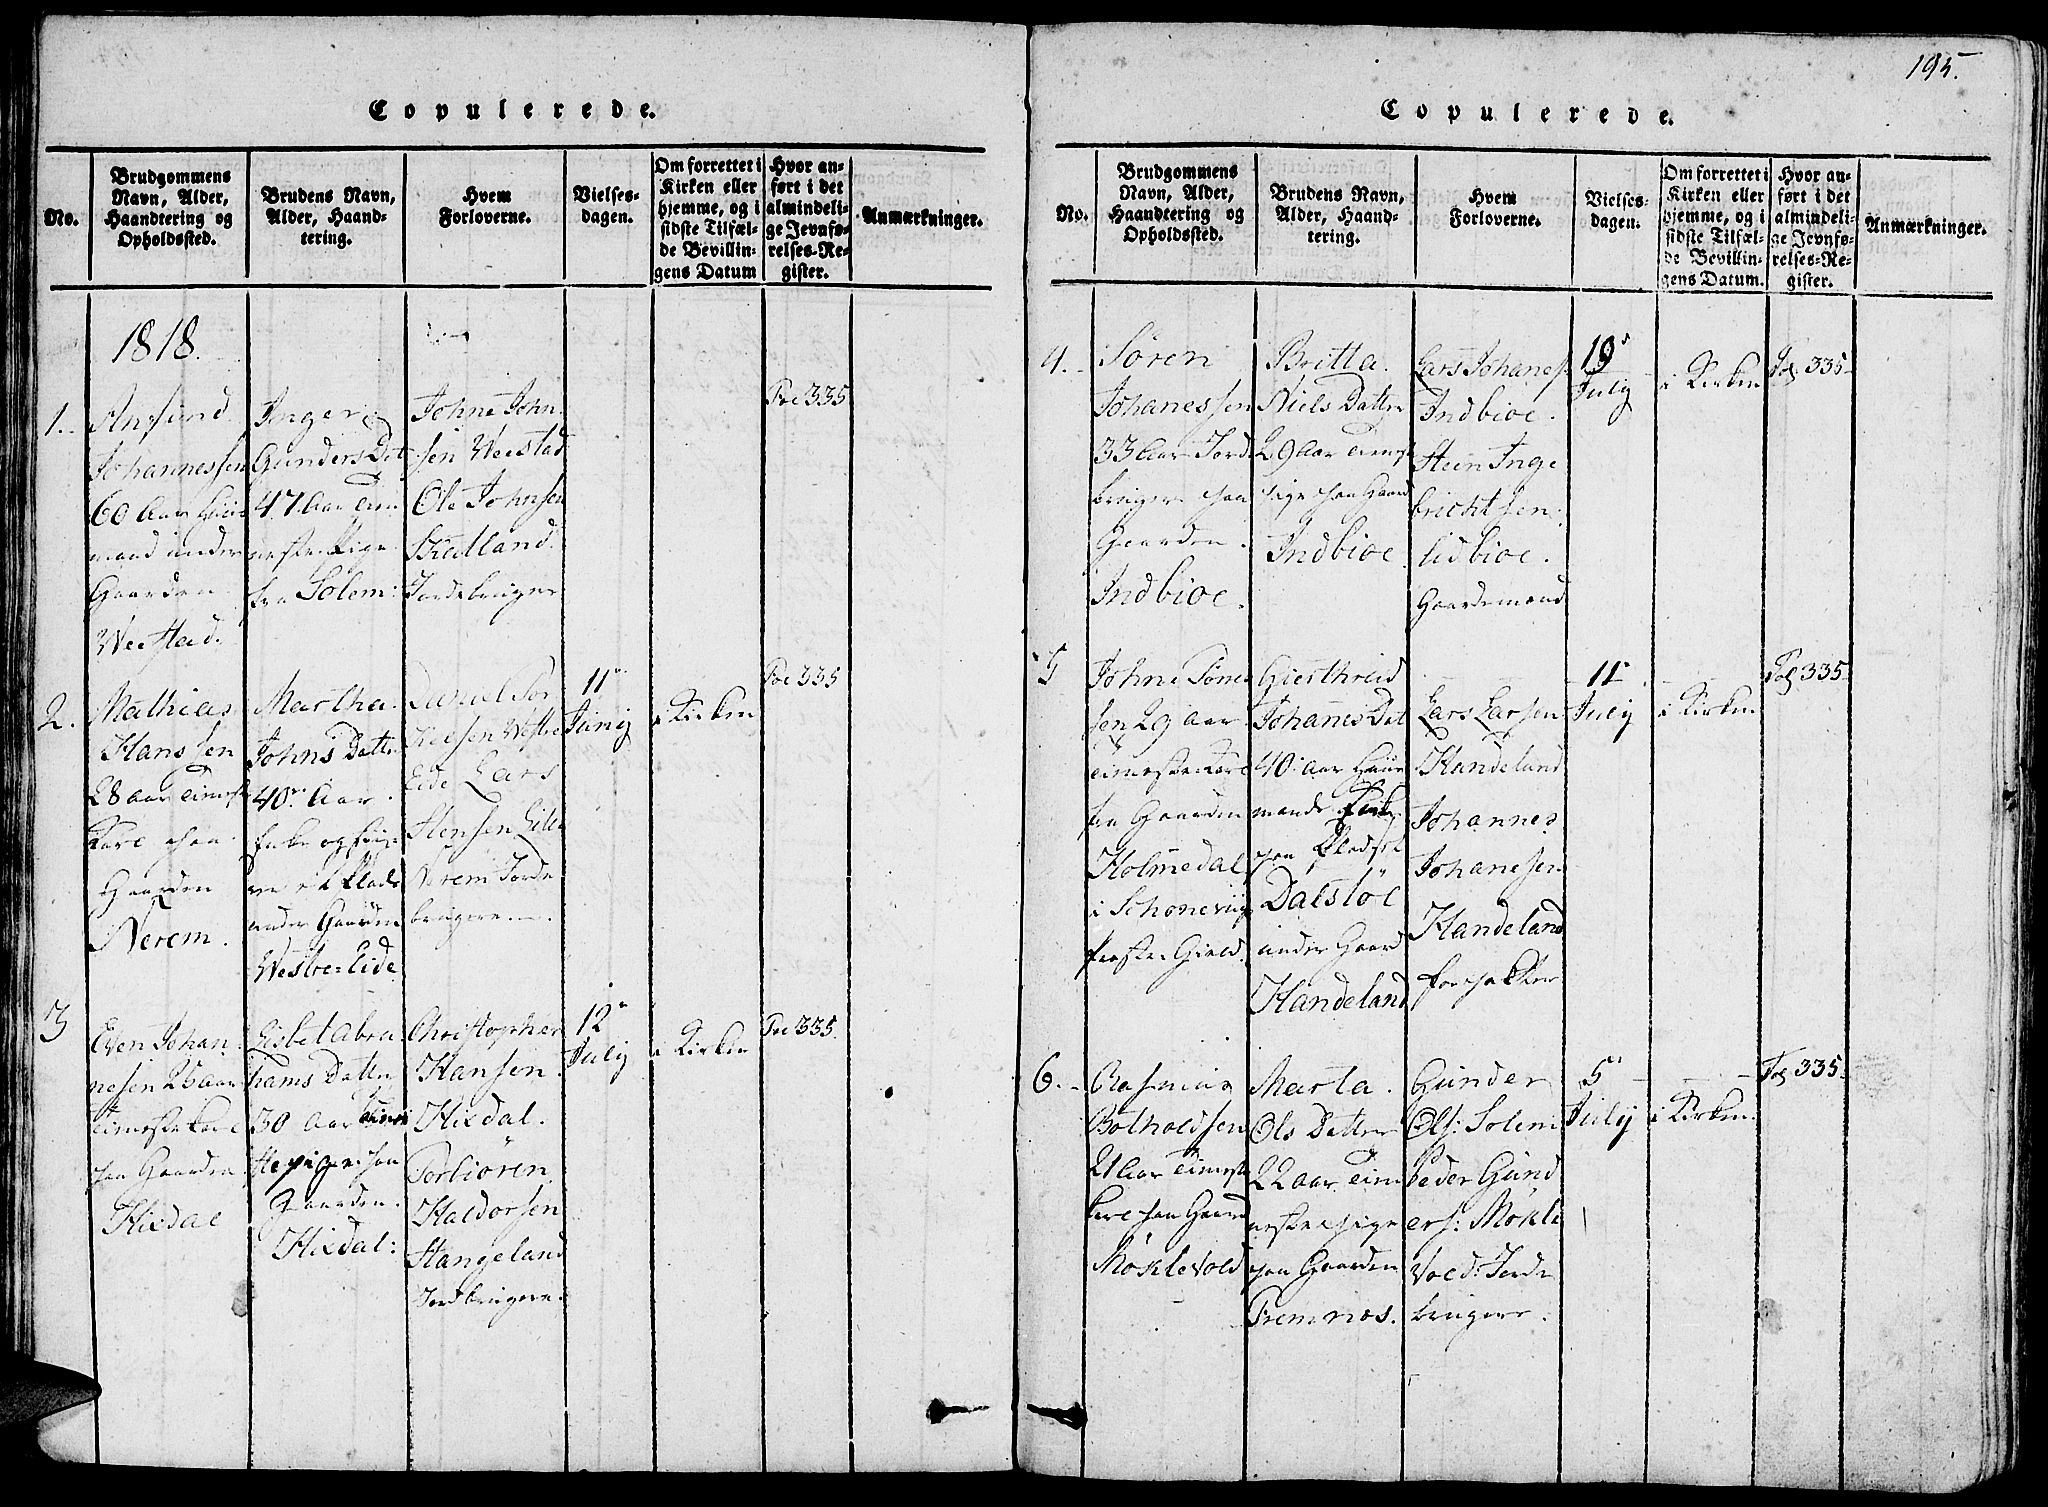 195.
Copulerede.
No.
Brudgommens
Navn, Alder,
Haandtering og
Opholdssted.
Brudens Navn,
Alder, Haand-
tering.
Hvem
Forloverne.
Vielses-
dagen.
Om forrettet i
Kirken eller
hjemme, og i
sidste Tilfæl-
de Bevillin-
gens Datum
Hvor an-
ført i det
almindeli-
ge Jevnfø-
relses-Re-
gister.
Anmærkninger.
1818.
1.
Johannessen
60 Aar
mand under
Gaarden
Weestad.
Inger
Gunders Dat
47 Aar
neste Pige
fra Solem:
Johne John
sen Weestad
Ole Johnsen
Jordbruger
Foe 335
2.
Mathias
Hanssen
28 Aar
Karl paa
Gaarden
Nerem.
Martha
Johns Datter
40 Aar
under Gaarden
Westre Eide
Eide Lars
Nerem Jorde
brugere
11
Junij
i Kirken
Foe 335
3
Even Johan
nesen 25 Aar
tieneste Karl
paa Gaarden
Hixdal
Lisbet Abra
hams Datter
30 Aar tiene
ste pige paa
Gaarden.
Hixdal:
Christopher
Hansen
Hixdal.
Torbiören
Haldorsen
Stangeland
Jordbrugere.
12
Julij
i Kirken
Foe 335.
Copulerede.
No.
Brudgommens
Navn, Alder,
Haandtering og
Opholdssted.
Brudens Navn,
Alder, Haand-
tering.
Hvem
Forloverne.
Vielses-
dagen.
Om forrettet i
Kirken eller
hjemme, og i
sidste Tilfæl-
de Bevillin-
gens Datum.
Hvor an-
ført i det
almindeli-
ge Jevnfø-
relses-Re-
gister.
Anmærkninger.
4.
Sören
Johanessen
33 Aar Jord
bruger paa
Gaarden.
Indbioe.
Britta.
Niels Datter
29 Aar tienest
pige paa Gaard
Indbioe
Lars Johanes
Indbioe.
Steen Inge
brichtsen
Gaardemænd
19
Julij
i Kirken
Fol 335
5
Johne
sen 29 Aar
tieneste Karl
fra Gaarden
Holmedal
i Schoneviig
Preste Gield.
Johanes Dat
40 Aar Huus
mands Enke
paa Pladset
Dalstöe
under Gaard
Handeland
Lars Larsen
Handeland
Johannes
Johanesen
Handeland
11
Julij
i Kirken
Fol 335
6.
Rasmus
Botholdsen
21 Aar tieneste
Karl paa Gaard
Möklevold
Marta.
Ols Datter
22 Aar tien
neste pige
paa Gaarden
Tremnos.
Gunder
Ols: Solem
Peder Gund
ers: Mökle
Vold: Jorde
brugere.
5
Julij
i Kirken.
Fol 335.